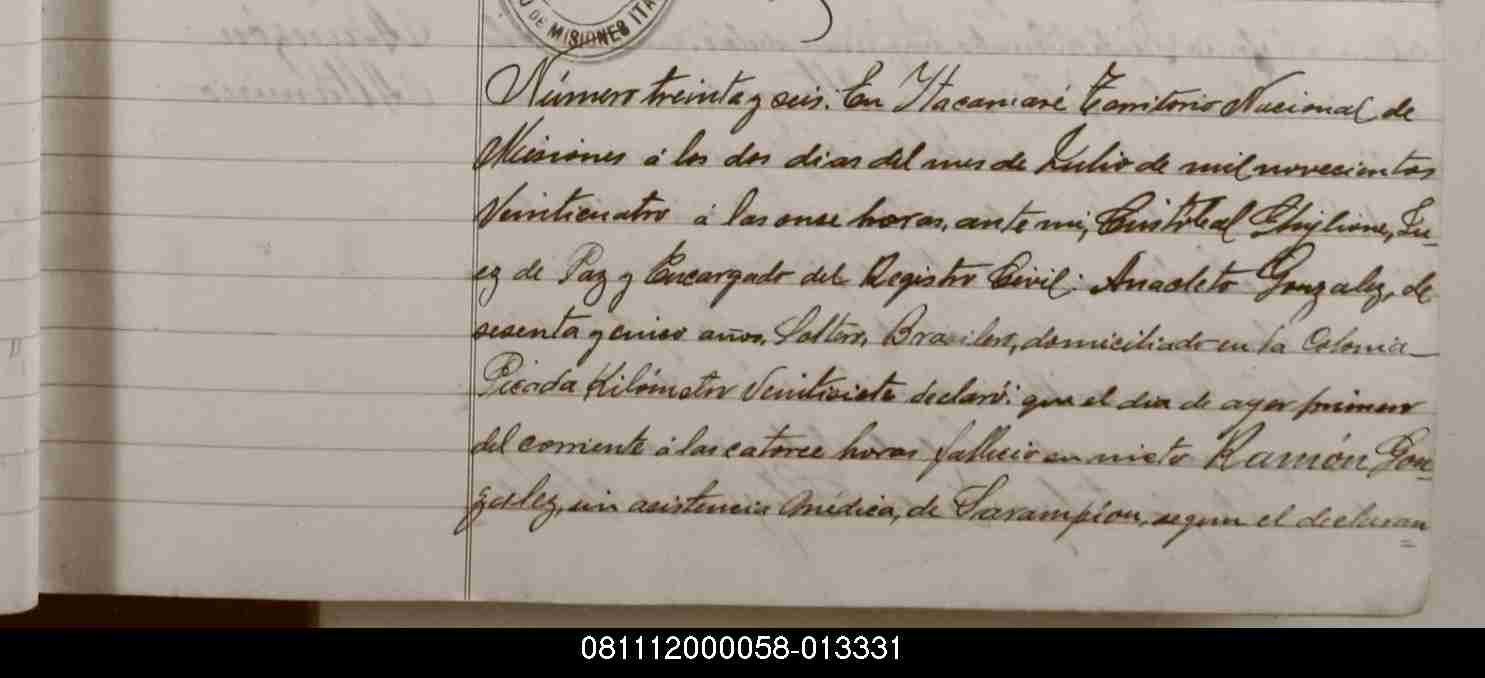 O DE MISIONES ITA
Número treinta y seis. En Itacaruaré Territorio Nacional de
Misiones á los dos dias del mes de Julio de mil novecientos
Veinticuatro á las once horas, ante mi, Cristobal Ghiglione, Ju=
ez de Paz y Encargado del Registro Civil: Anacleto Gonzalez, de
sesenta y cinco años, Soltero, Brasilero, domiciliado en la Colonia
Picada Kilómetro Veintisiete declaró: que el dia de ayer primero
del corriente á las catorce horas fallecio su nieto Ramón Gon=
zalez, sin asistencia médica, de Sarampíon, segun el declaran=
081112000058-013331